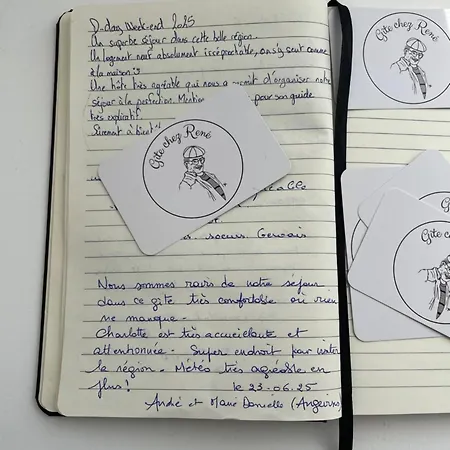 D-day, Week-end 2025
Un superbe séjour dans cette belle région.
Un logement neuf absolument irréprochable, on s'y sent comme
à la maison :)
Une hôte très agréable qui nous a permit d'organiser notre
séjour à la perfection. Mention pour son guide
très explicatif.
Sûrement à bientôt
Gîte chez René
soeurs Gervais
Nous sommes ravis de notre séjour
dans ce gîte très confortable où rien
ne manque -
Charlotte est très accueillante et
attentionnée - Super endroit pour visiter
la région - Météo très agréable en
plus !
le 23-06-25
André et Marie Danielle (Angevins)
Gîte chez René
Gîte chez
Gîte chez